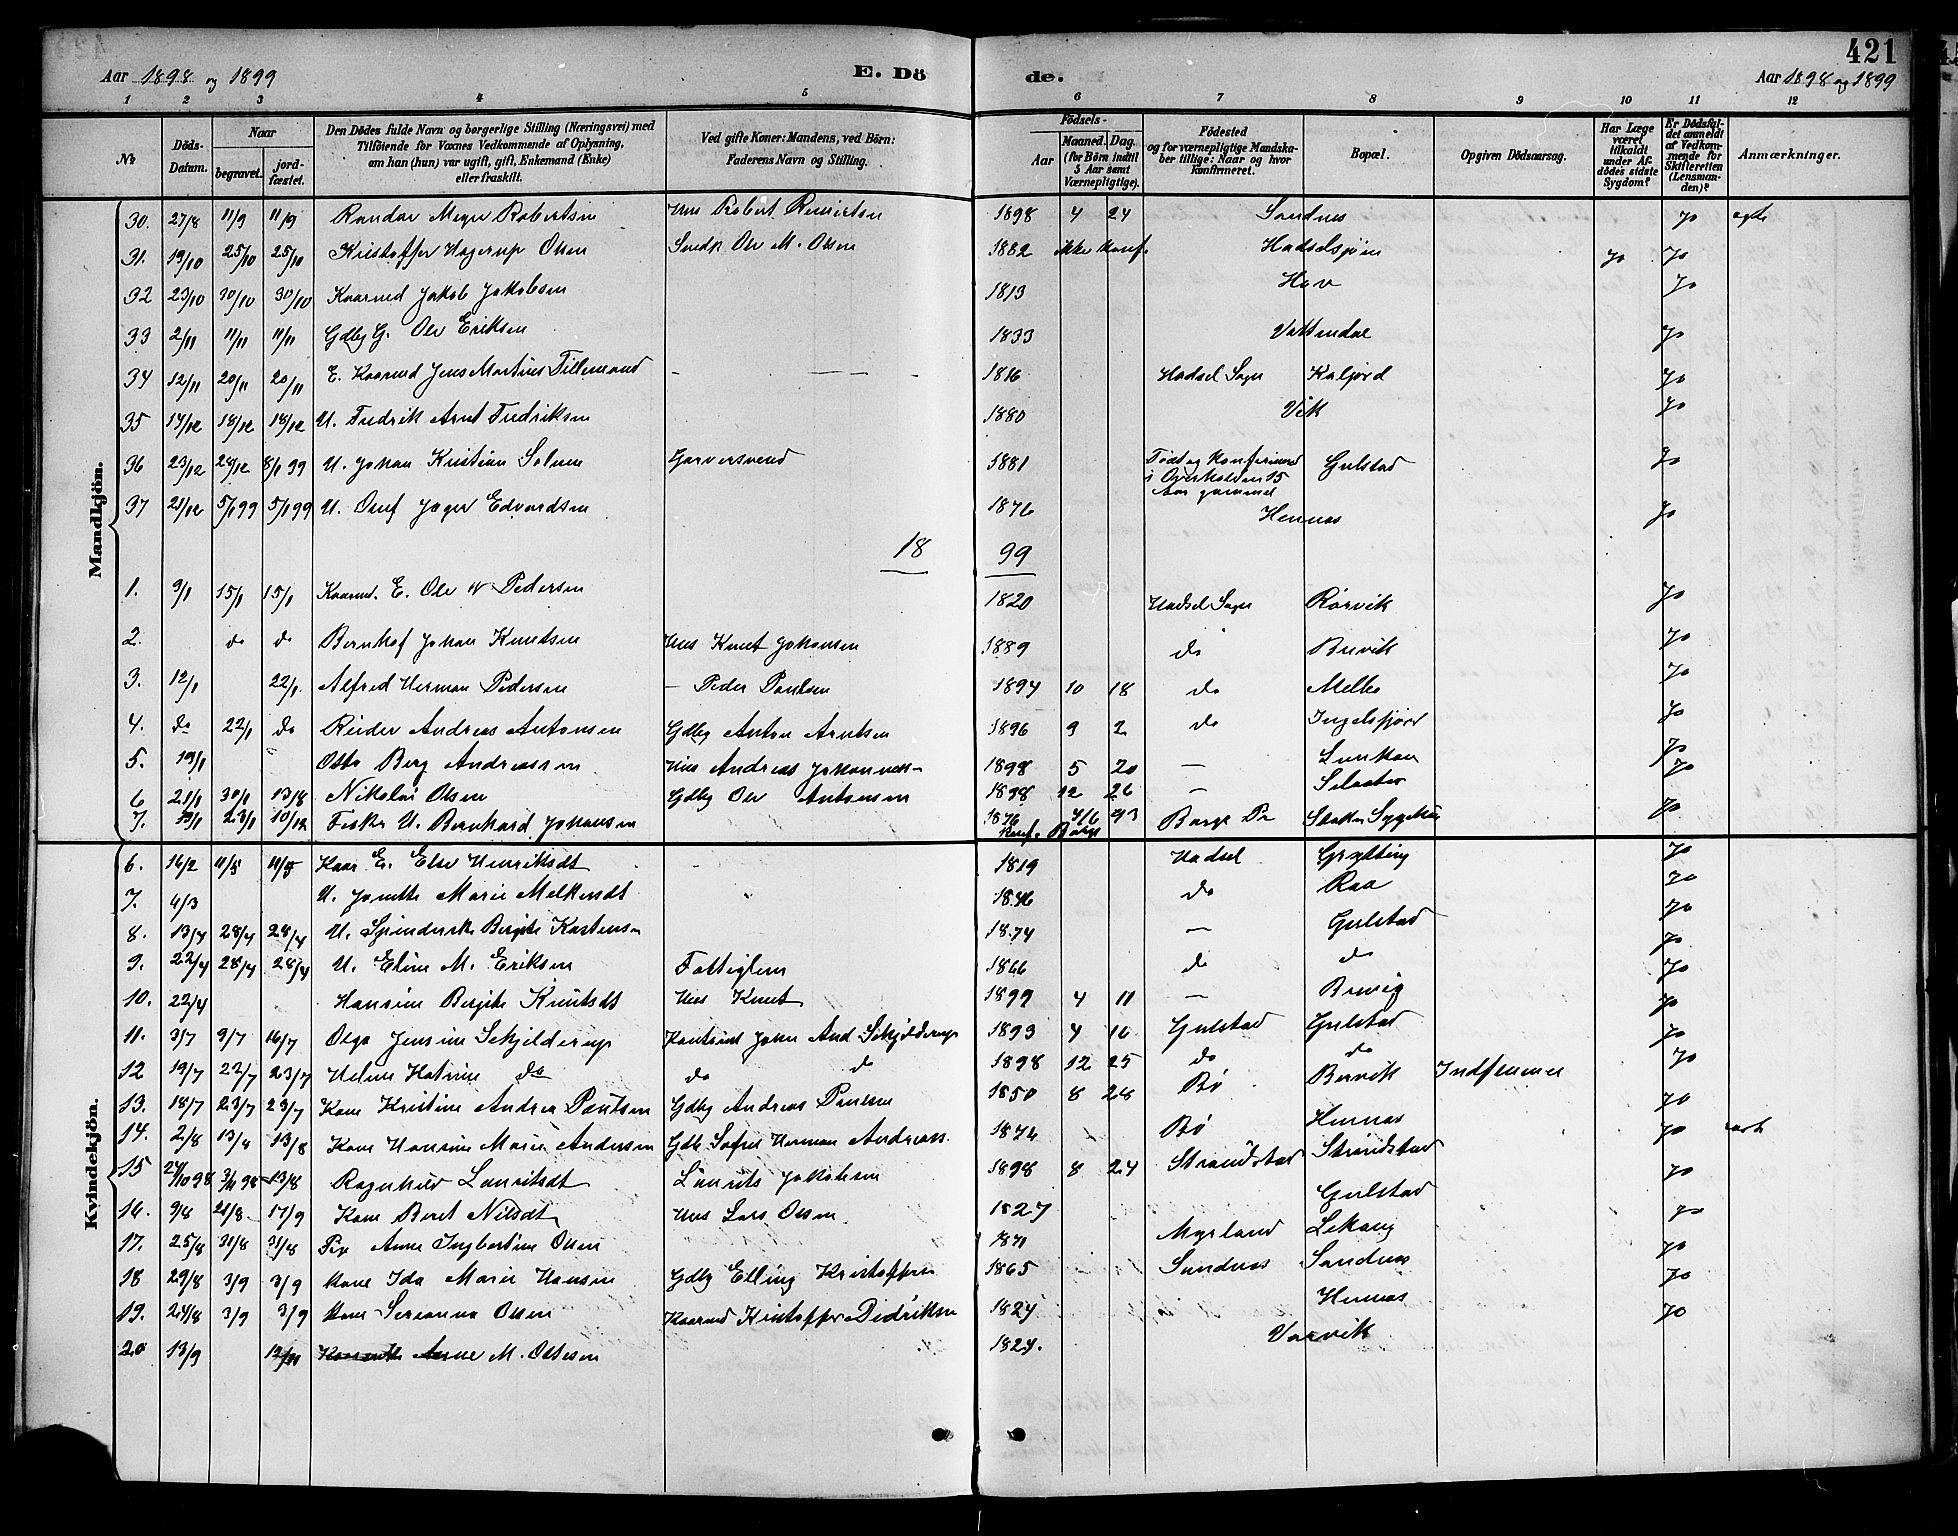 Aar 1898 og 1899 E. Dö de. 421
Aar 1898 og 1899
1 2 3 4 5 6 7 8 9 10 11 12
No
Döds-Datum.
Naar
begravet.
jord-fæstet.
Den Dödes fulde Navn og borgerlige Stilling (Næringsvei) med
Tilföiende for Voxnes Vedkommende af Oplysning,
om han (hun) var ugift, gift, Enkemand (Enke)
eller fraskilt.
Ved gifte Koner: Mandens, ved Börn:
Faderens Navn og Stilling.
Födsels-
Aar
Maaned. Dag.
(for Börn indtil
5 Aar samt
Værnepligtige).
Födested
og for værnepligtige Mandska-
ber tillige: Naar og hvor
konfirmeret.
Bopæl.
Opgiven Dödsaarsag.
Har Læge
været
tilkaldt
under Af-
dödes sidste
Sygdom?
Er Dödsfal-
det anmeldt
af Vedkom-
mende for
Skifteretten
(Lensman-
den)?
Anmærkninger.
Mandkjön.
30. 27/8 11/9 11/9 Randar Meyer Robertsen Robert 1898 4 24 Sandnes Jo ægte
31. 19/10 25/10 25/10 Kristoffer Hagerup Olsen Ole M. Olsen 1882 ikke konf. Jo Jo
32 23/10 30/10 30/10 Kaarmd Jakob Jakobsen 1813 Hov Jo
33 2/11 11/11 11/11 Gdbg G. Ole Eriksen 1833 Vattendal Jo
34 12/11 20/11 20/11 E. Kaarmd Jens Martinus Tillemand — 1816 Hadsel Sogn Kaljord Jo
35 17/12 18/12 18/12 U. Fredrik Arnt Fredriksen 1880 Vik Jo
36 23/12 28/12 8/1 99 U. Johan Kristian Solum Garversvend 1881 Født og Konfirmered Gulstad Jo
i Overhalden 15
Aar gammel
37 21/12 5/1 99 5/1 99 U. Oluf Jæger Edvardsen 1876 Hennes Jo
18 99
1. 9/1 15/1 15/1 Kaarmd. E. Ole Pedersen 1820 Hadsel Sogn Rørvik Jo
2. do do Bernhof Johan Knutsen Hus Knut Johansen 1889 do Brevik Jo
3. 12/1 22/1 Alfred Herman Pedersen — Peder Paulsen 1894 10 18 do Melbo Jo
4. do 22/1 do Reider Andreas Antonsen Gdbg Anton Arntsen 1896 9 2 do Ingelsfjord Jo
5. 19/1 Otto Berg Andreassen Hus Andreas 1898 5 20 — Lunkan Jo
6 21/1 30/1 13/8 Nikolai Olsen Gdbg Ole Antonsen 1898 12 26 — Jo
7. 19/1 23/1 10/12 Fisker U. Bernhard Johansen 1876 4/6 93 Borge Pr Jo
Konf. Borge
Kvindekjön.
6. 16/2 11/5 11/5 Kaar E. Else Henriksdt 1819 Hadsel Grytting Jo
7. 4/3 U. Jonette Marie Melkersdt 1846 do Raa Jo
8. 13/4 28/4 28/4 U. Bergite 1874 — Gulstad Jo
9. 22/4 28/4 28/4 U. Eline M. Eriksen Fattiglem 1866 do do Jo
10. 22/4 Hansine Bergite Knutsdt Hus Knut 1899 4 11 — Brevig Jo
11. 3/7 9/7 16/7 Olga Jensine Schjelderup John And Schjelderup 1893 4 16 Gulstad Gulstad Jo
12 19/7 22/7 23/7 Helene Katrine do do do 1898 12 25 do do Jo
13. 18/7 23/7 23/7 Kone Kristine Andrea Paulsen Gdbg Andreas Paulsen 1850 8 28 Bø Brevik Jo
14. 2/8 13/8 13/8 Kone Hansine Marie Andersen Gdb Herman Andreass. 1874 Bø Hennes Jo
15 24/10 98 3/11 98 13/8 Ragnhild Lauritsdt Laurits Jakobsen 1898 8 24 Strandstad Strandstad Jo
16. 9/8 21/8 17/9 Kone Beret Nilsdt Hus Lars Olsen 1827 Gulstad Jo
17. 25/8 31/8 31/8 Anne Ingbertine Olsen Myrland Lekang Jo
18 29/8 3/9 3/9 Kone Ida Marie Hansen Gdbg Elling Kristoffersen 1865 Sandnes Sandnes Jo
19. 24/8 3/9 3/9 Kone Serianna Olsen Kaarmd Kristoffer Didriksen 1824 Hennes Jo
20 13/9 12/11 Anne M. Ottesen 1824. Vorvik